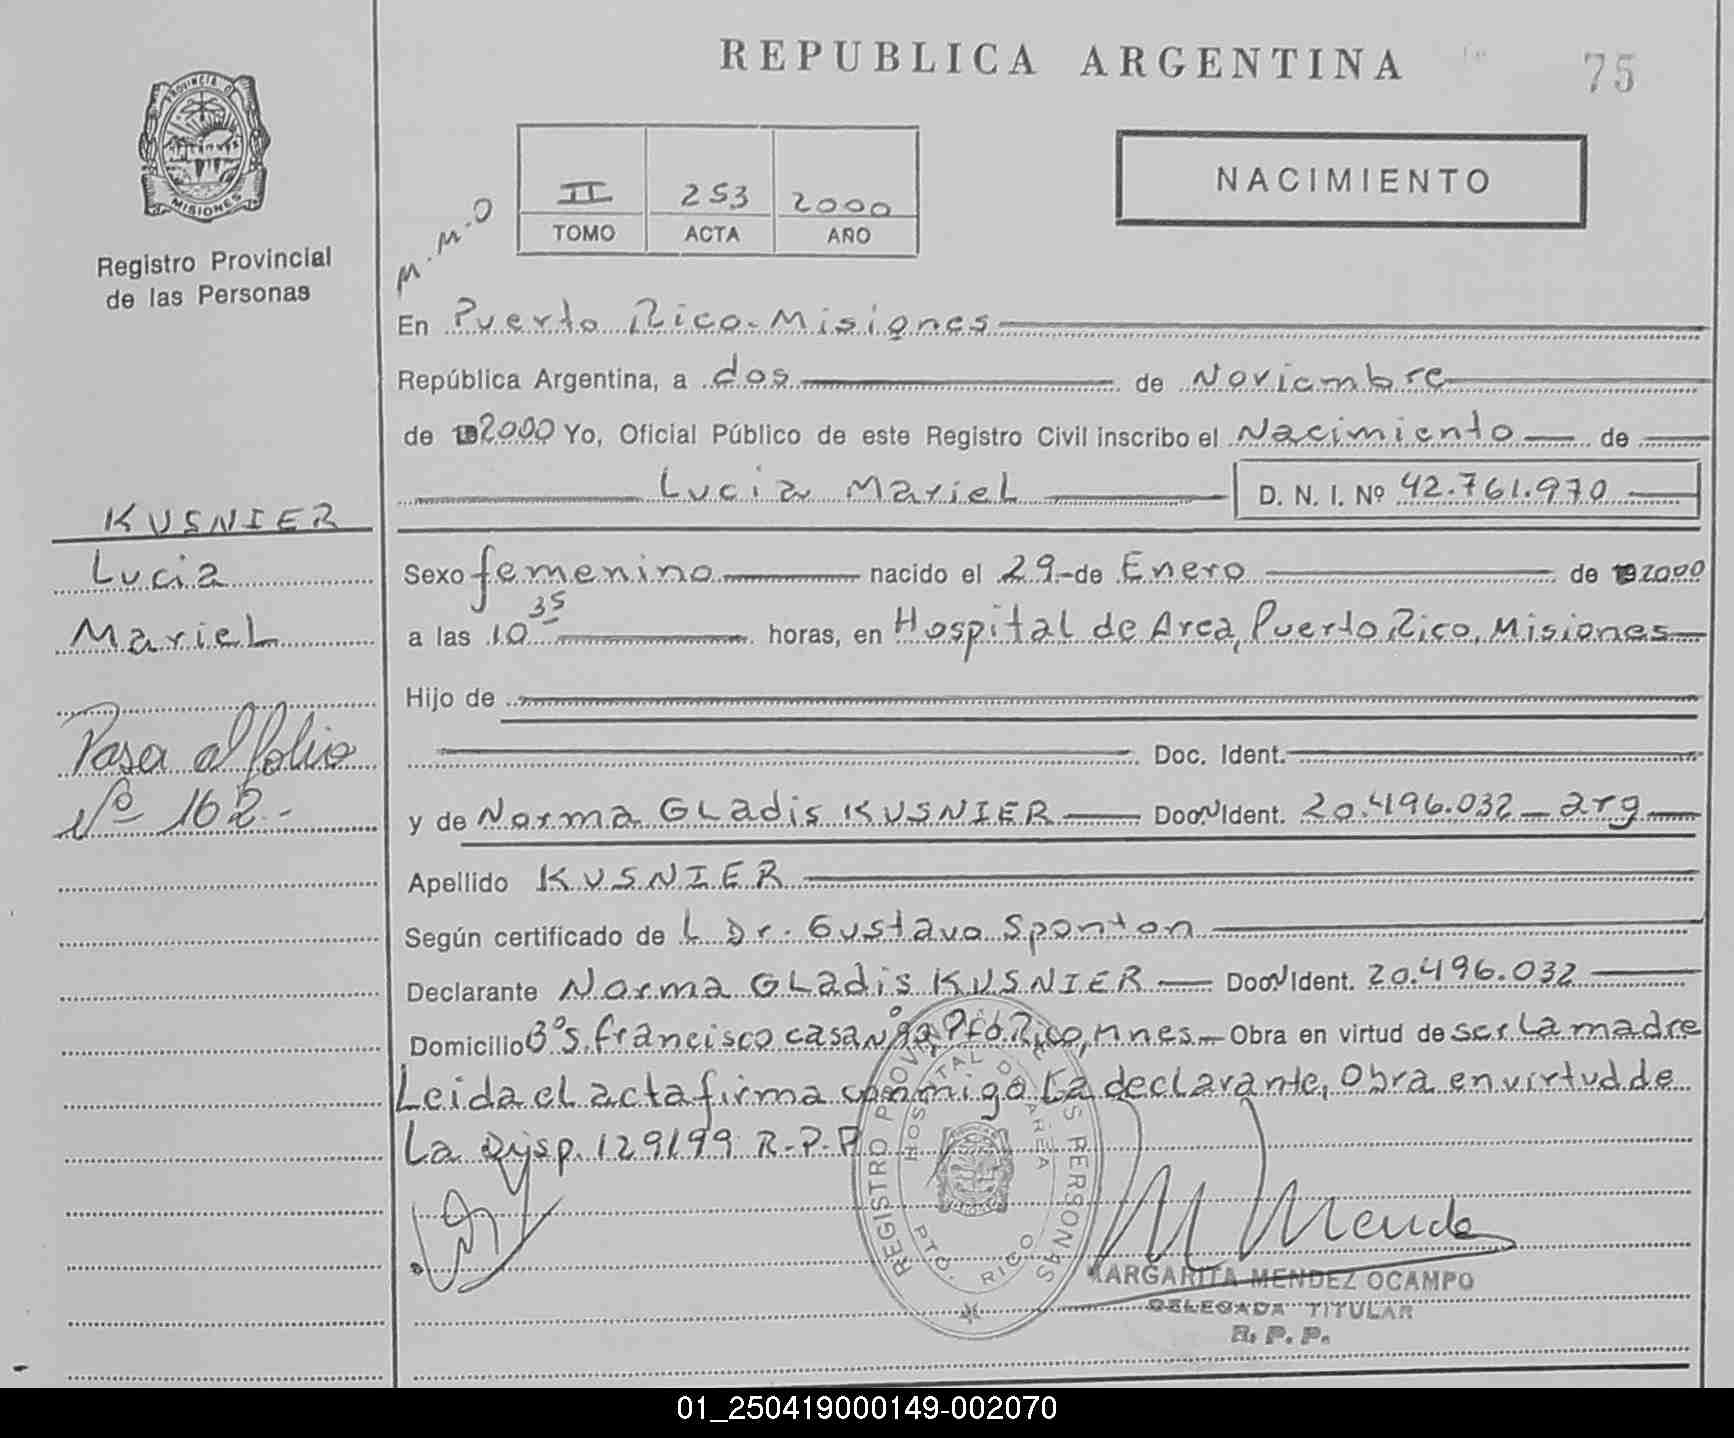 REPUBLICA ARGENTINA
75
PROVINCIA D
MISIONES
Registro Provincial
de las Personas
M.M.O
II 253 2000
TOMO ACTA AÑO
NACIMIENTO
En Puerto Rico - Misiones
República Argentina, a dos de Noviembre
de 2000 Yo, Oficial Público de este Registro Civil inscribo el Nacimiento de
Lucia Mariel D. N. I. Nº 42.761.970
KUSNIER
Lucia
Mariel
Pasa al folio
Nº 162.-
Sexo femenino nacido el 29-de Enero de 2000
a las 10 35 horas, en Hospital de Area, Puerto Rico, Misiones
Hijo de
Doc. Ident.
y de Norma Gladis KUSNIER Doc. Ident. 20.496.032 - arg
Apellido KUSNIER
Según certificado de L Dr. Gustavo Sponton
Declarante Norma Gladis KUSNIER Doc. Ident. 20.496.032
Domicilio Bº S. francisco casa Nº 9a, Pto Rico, Mnes - Obra en virtud de ser La madre
Leida el acta firma conmigo La declarante, Obra en virtud de
La Disp. 129/99 R.P.P
REGISTRO PROV S PERSONAS
HOSPITAL DE AREA
PTO. RICO
M Mendez
MARGARITA MENDEZ OCAMPO
DELEGADA TITULAR
R. P. P.
01_250419000149-002070